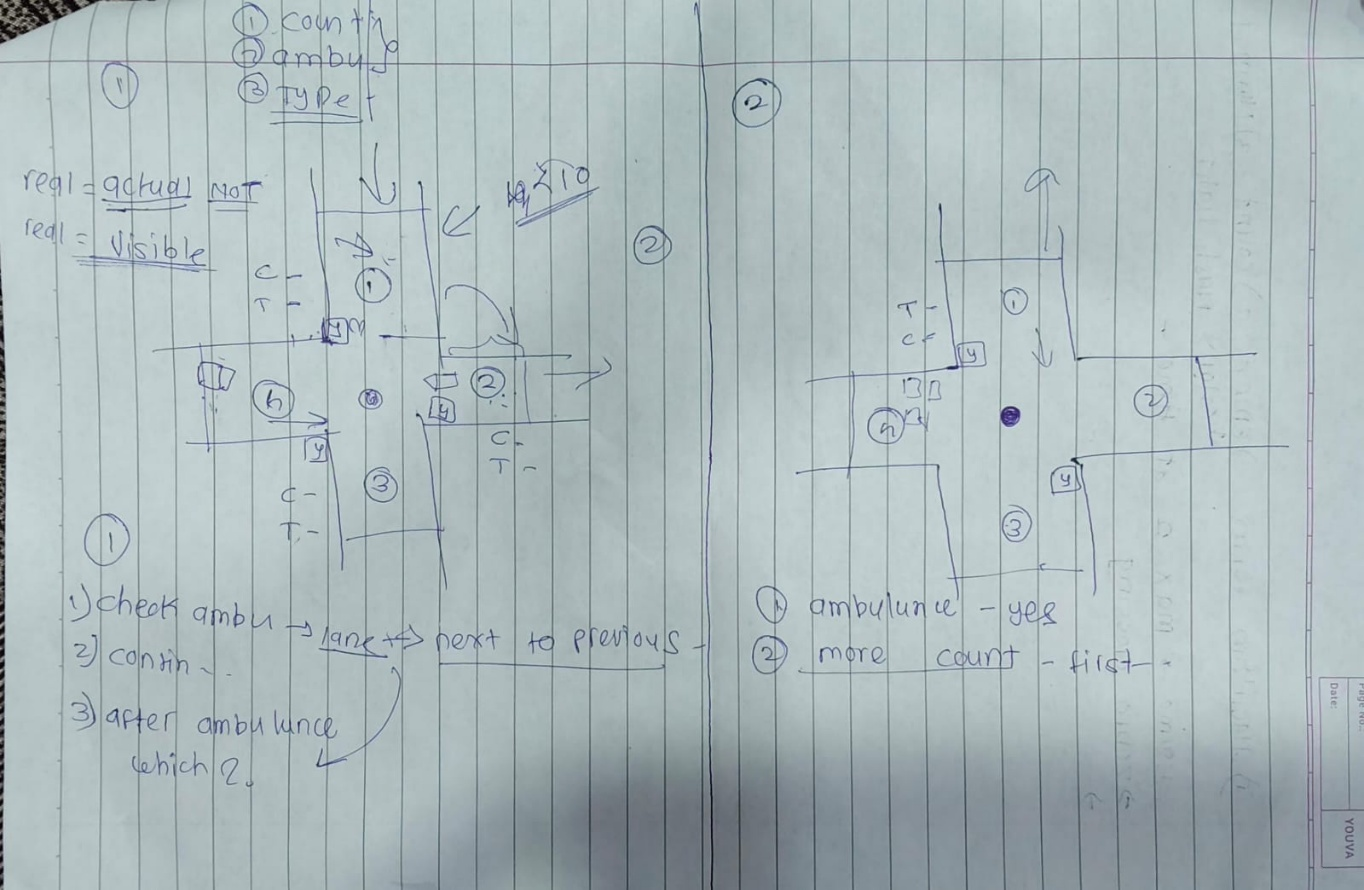 ① count
② ambu
③ Type
①
real = actual NOT
real = visible
10
C -
T -
①
y
②
y
C -
T -
4
y
③
C -
T -
②
①
1) check ambu → lane → next to previous -
2) contin - .
3) after ambulunce
which ?
②
T -
C -
①
y
②
4
y
③
① ambulunce - yes
② more count - first -
Page No.:
Date:
YOUVA